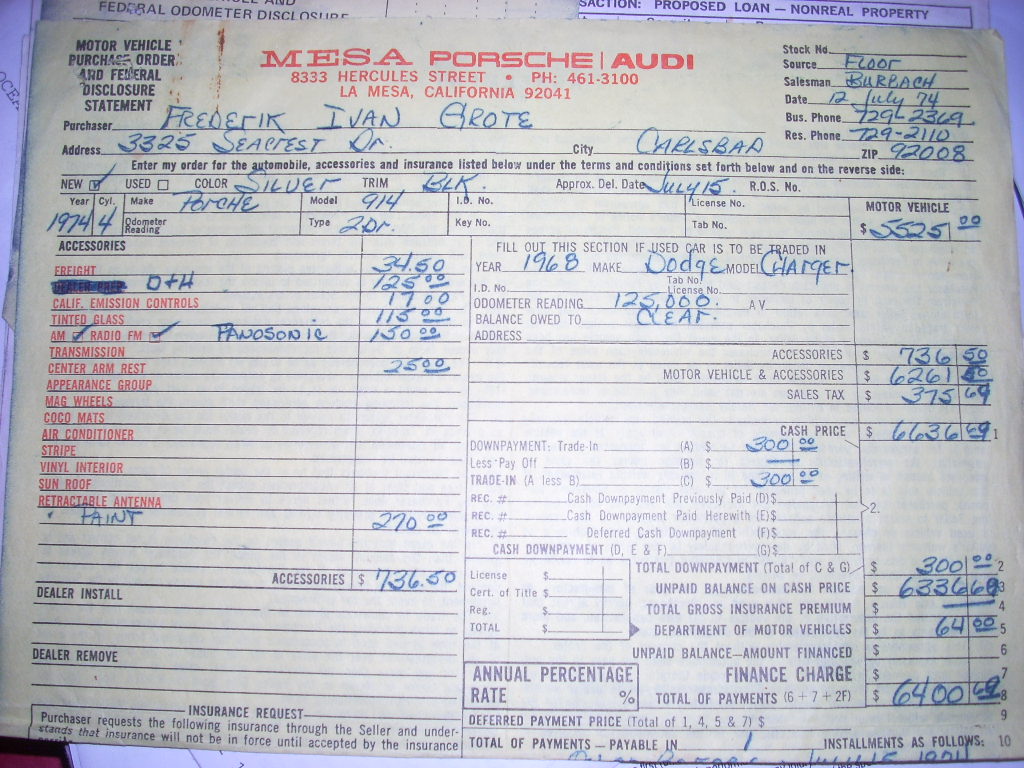 FEDERAL ODOMETER DISCLOSURE
SACTION: PROPOSED LOAN — NONREAL PROPERTY
MOTOR VEHICLE
PURCHASE ORDER
AND FEDERAL
DISCLOSURE
STATEMENT
MESA PORSCHE | AUDI
8333 HERCULES STREET • PH: 461-3100
LA MESA, CALIFORNIA 92041
Stock No.
Source FLOOR
Salesman BURBACH
Date 12 July 74
Bus. Phone 729-2369
Res. Phone 729-2110
Purchaser FREDERIK IVAN GROTE
Address 3325 SEACREST Dr. City CARLSBAD ZIP 92008
Enter my order for the automobile, accessories and insurance listed below under the terms and conditions set forth below and on the reverse side:
NEW ✓ USED COLOR SILVER TRIM BLK. Approx. Del. Date July 15 R.O.S. No.
Year 1974 Cyl. 4 Make PORCHE Model 914 I.D. No. License No. MOTOR VEHICLE
Odometer Reading Type 2Dr. Key No. Tab No. $ 5525 00
ACCESSORIES
FREIGHT 34.50
DEALER PREP D+H 125 00
CALIF. EMISSION CONTROLS 17 00
TINTED GLASS 115 00
AM ✓ RADIO FM ✓ PANOSONIC 150 00
TRANSMISSION
CENTER ARM REST 25 00
APPEARANCE GROUP
MAG WHEELS
COCO MATS
AIR CONDITIONER
STRIPE
VINYL INTERIOR
SUN ROOF
RETRACTABLE ANTENNA
PAINT 270 00
ACCESSORIES $ 736.50
DEALER INSTALL
DEALER REMOVE
INSURANCE REQUEST
Purchaser requests the following insurance through the Seller and under-
stands that insurance will not be in force until accepted by the insurance
FILL OUT THIS SECTION IF USED CAR IS TO BE TRADED IN
YEAR 1968 MAKE Dodge MODEL CHARGER
I.D. No. Tab No. License No.
ODOMETER READING 125,000. A V
BALANCE OWED TO CLEAR.
ADDRESS
ACCESSORIES $ 736 50
MOTOR VEHICLE & ACCESSORIES $ 6261 50
SALES TAX $ 375 69
CASH PRICE $ 6636 69 1
DOWNPAYMENT: Trade-In (A) $ 300 00
Less Pay Off (B) $ —
TRADE-IN (A less B) (C) $ 300 00
REC. # Cash Downpayment Previously Paid (D) $
REC. # Cash Downpayment Paid Herewith (E) $ 2.
REC. # Deferred Cash Downpayment (F) $
CASH DOWNPAYMENT (D, E & F) (G) $
TOTAL DOWNPAYMENT (Total of C & G) $ 300 00 2
License $
Cert. of Title $
Reg. $
TOTAL $
UNPAID BALANCE ON CASH PRICE $ 6336 69 3
TOTAL GROSS INSURANCE PREMIUM $ — 4
DEPARTMENT OF MOTOR VEHICLES $ 64 00 5
UNPAID BALANCE—AMOUNT FINANCED $ 6
ANNUAL PERCENTAGE RATE %
FINANCE CHARGE $ 7
TOTAL OF PAYMENTS (6 + 7 + 2F) $ 6400 69 8
DEFERRED PAYMENT PRICE (Total of 1, 4, 5 & 7) $ 9
TOTAL OF PAYMENTS — PAYABLE IN 1 INSTALLMENTS AS FOLLOWS: 10